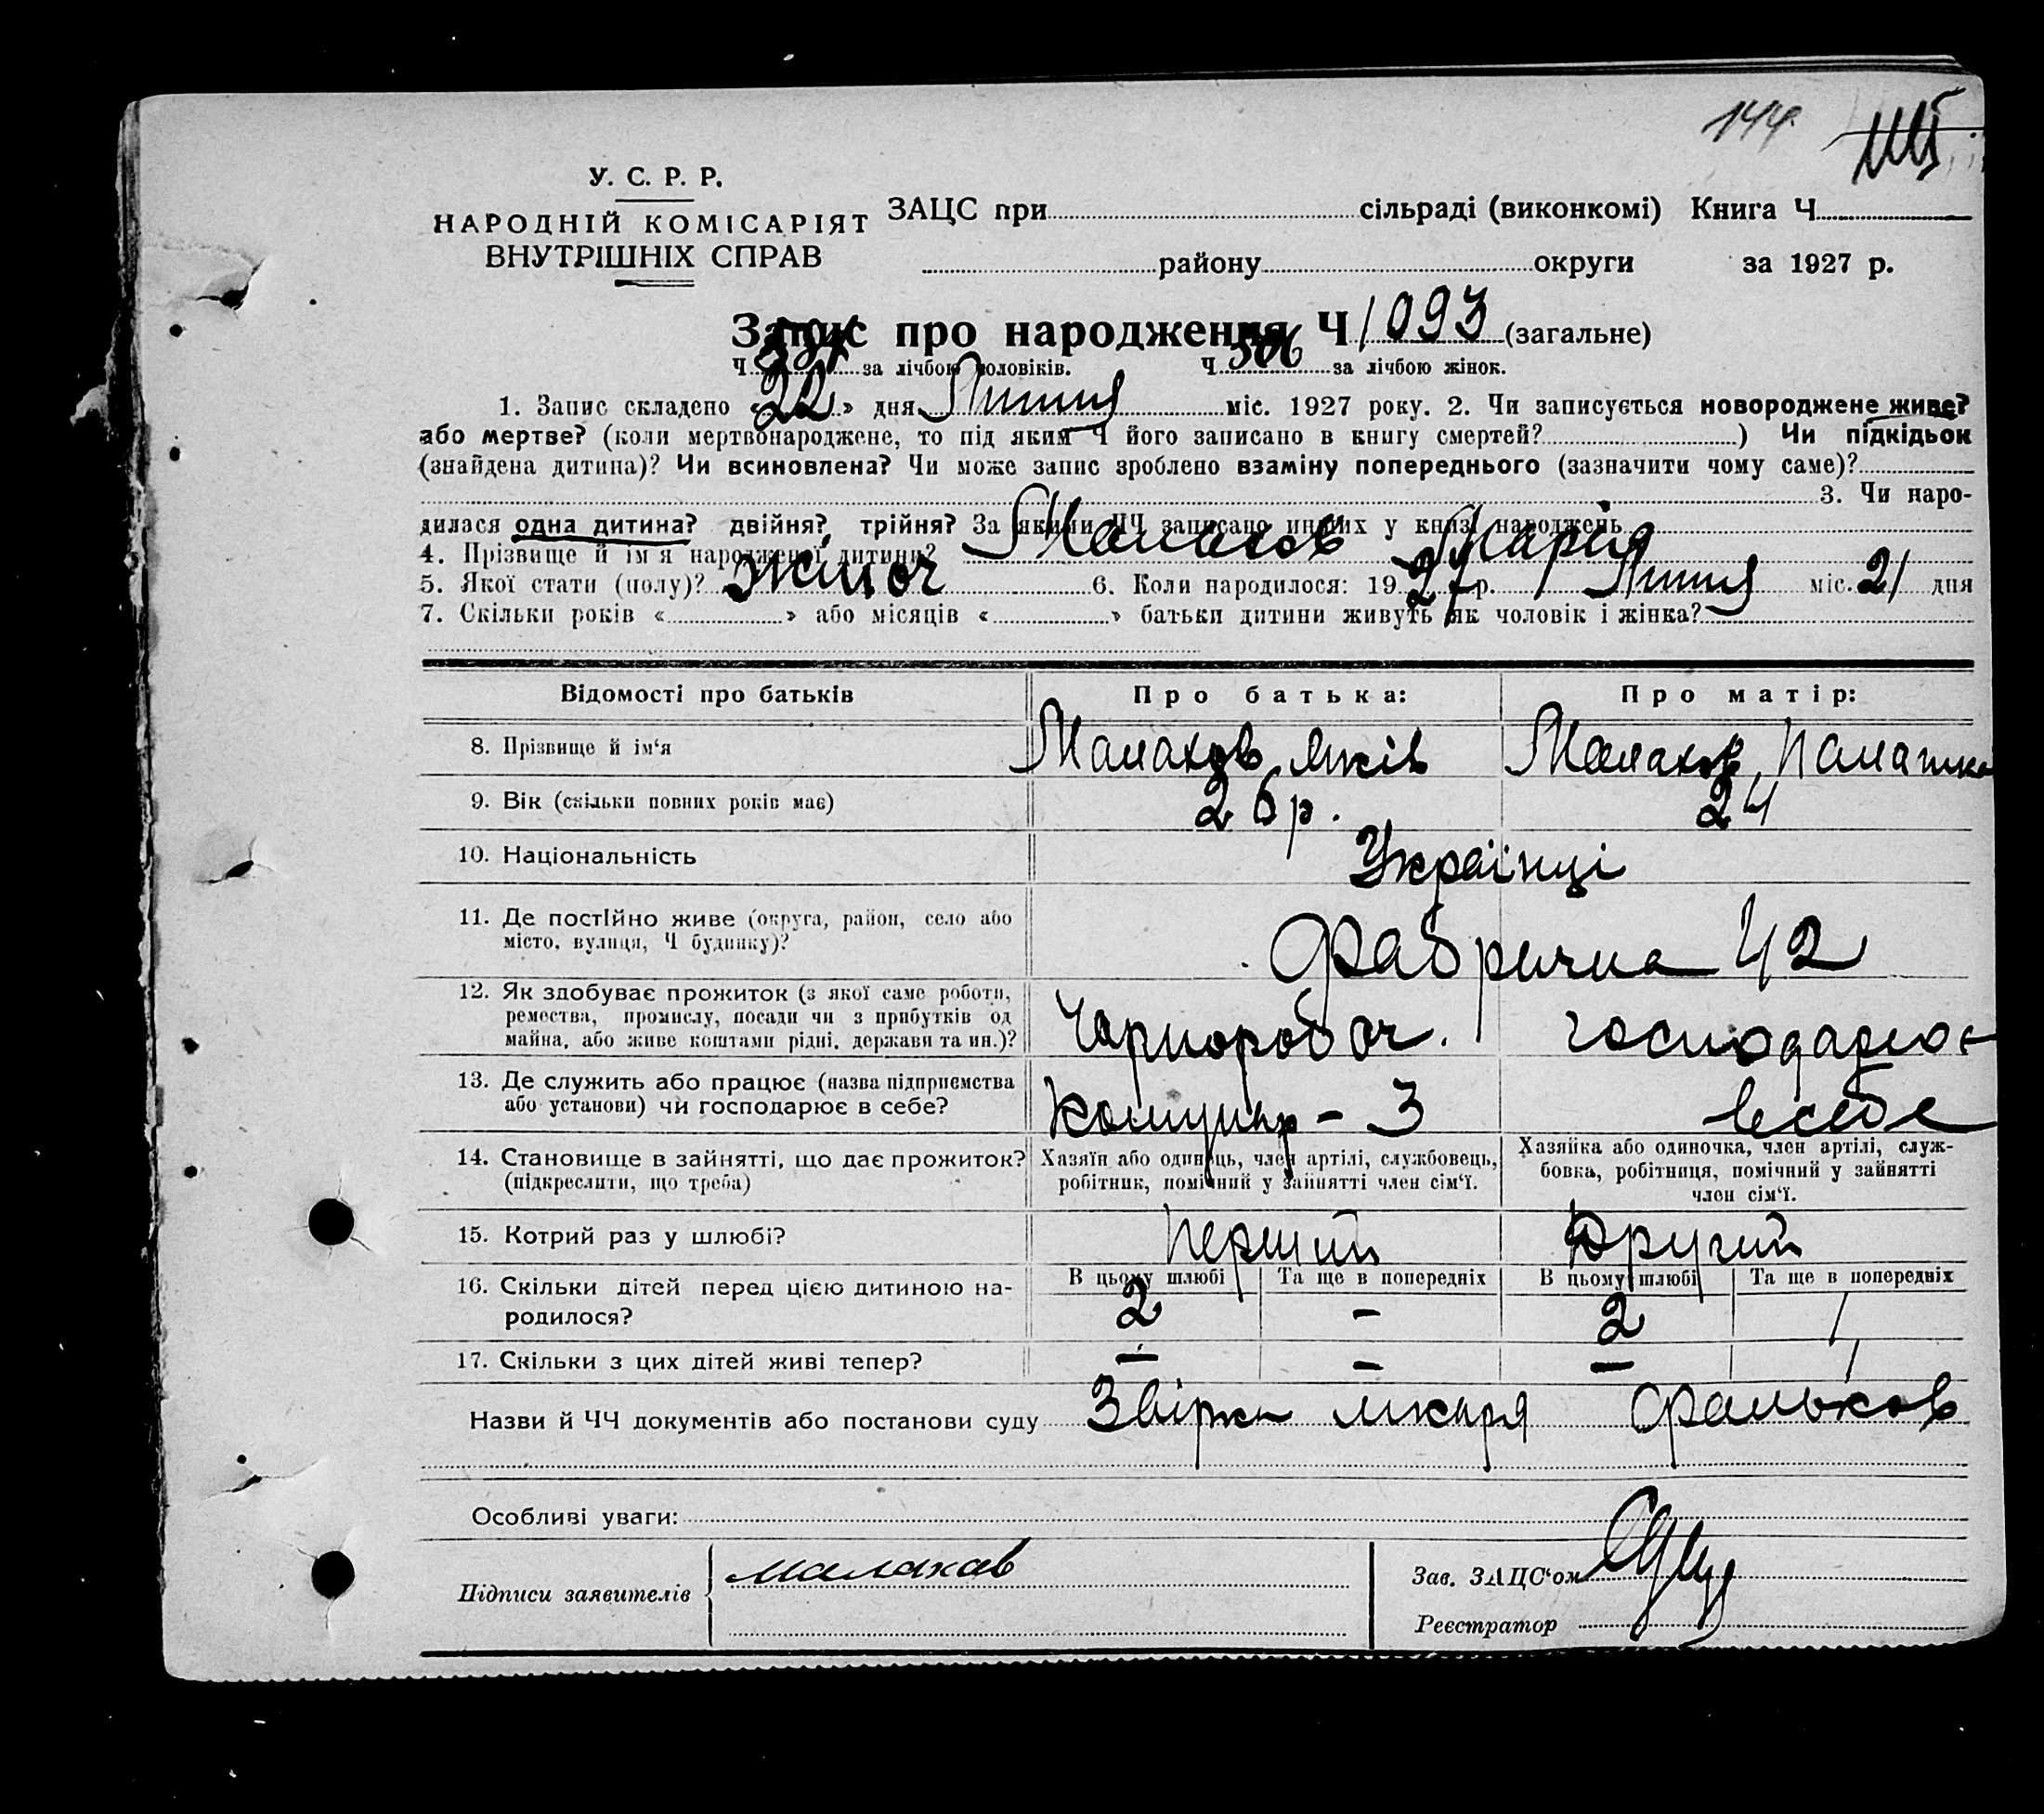 144
У. С. Р. Р.
НАРОДНІЙ КОМІСАРІЯТ
ВНУТРІШНІХ СПРАВ
ЗАЦС при сільраді (виконкомі) Книга Ч.
району округи за 1927 р.
Запис про народження Ч 1093 (загальне)
Ч за лічбою чоловіків. Ч 506 за лічбою жінок.
1. Запис складено «22» дня Липня міс. 1927 року. 2. Чи записується новороджене живе?
або мертве? (коли мертвонароджене, то під яким Ч його записано в книгу смертей? ) Чи підкідьок
(знайдена дитина)? Чи всиновлена? Чи може запис зроблено взаміну попереднього (зазначити чому саме)?
3. Чи наро-
дилася одна дитина? двійня? трійня? За якими ЧЧ записано инших у книзі народжень
4. Прізвище й ім'я народженої дитини? Малахов Марія
5. Якої стати (полу)? жіноч 6. Коли народилося: 1927 р. Липня міс. 21 дня
7. Скільки років « » або місяців « » батьки дитини живуть як чоловік і жінка?
Відомості про батьків Про батька: Про матір:
8. Прізвище й ім'я Малахов Яків Малахов, Палашка
9. Вік (скільки повних років має) 26 р. 24
10. Національність Українці
11. Де постійно живе (округа, район, село або
місто, вулиця, Ч будинку)? Фабрична 42
12. Як здобуває прожиток (з якої саме роботи,
ремества, промислу, посади чи з прибутків од
майна, або живе коштами рідні, держави та ин.)? Чорнороб оч. господарює
13. Де служить або працює (назва підприємства
або установи) чи господарює в себе? Комунар - 3 всебе
14. Становище в зайнятті, що дає прожиток?
(підкреслити, що треба)
Хазяїн або одинець, член артілі, службовець,
робітник, помічний у зайнятті член сім'ї.
Хазяйка або одиночка, член артілі, служ-
бовка, робітниця, помічний у зайнятті
член сім'ї.
15. Котрий раз у шлюбі? Перший Другий
В цьому шлюбі Та ще в попередніх В цьому шлюбі Та ще в попередніх
16. Скільки дітей перед цією дитиною на-
родилося? 2 - 2 1
17. Скільки з цих дітей живі тепер? - - - 1
Назви й ЧЧ документів або постанови суду Звірка лікаря Фальков
Особливі уваги:
Підписи заявителів малахов
Зав. ЗАЦС'ом
Реєстратор